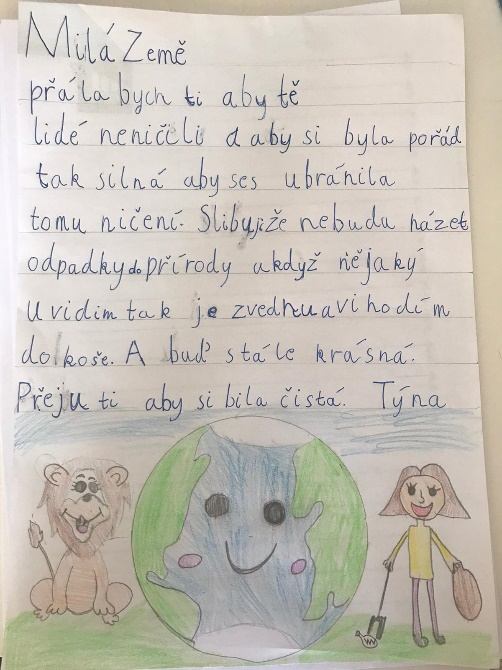 Milá Země
přála bych ti aby tě
lidé neničili a aby si byla pořád
tak silná aby ses ubránila
tomu ničení. Slibuji že nebudu házet
odpadky do přírody a když nějaký
uvidim tak je zvednu a vihodím
do koše. A buď stále krásná.
Přeju ti aby si bila čistá. Týna